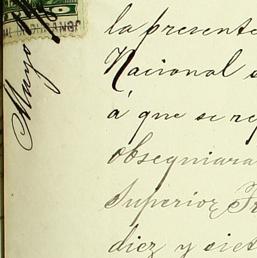 Mayo
la presente
Nacional
á que se re
obsequiara
Superior Fr
diez y siet